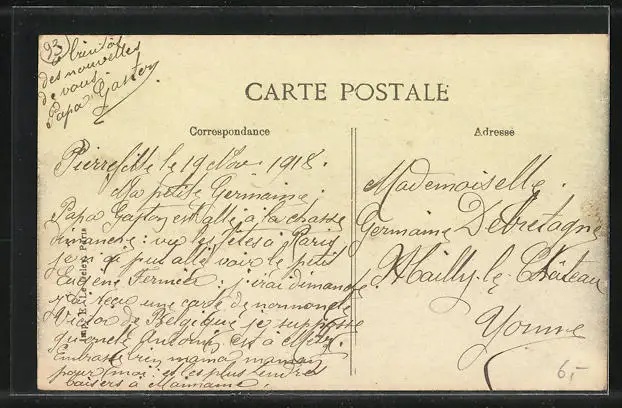 (93)
a bientôt
des nouvelles
de vous
Papa Gaston
CARTE POSTALE
Correspondance
Adresse
Pierrefitte le 19 Nov. 1918.
Ma petite Germaine:
Papa Gaston est allé à la chasse
dimanche: vu les fêtes à Paris
je n'ai pu allé voir le petit
Eugène Fermier: j'irai dimanche
j'ai reçu une carte de
Victor de Belgique je suppose
qu'oncle Antonin est à Metz.
Embrasse bien mama maman
pour moi: et les plus tendres
baisers à Mainaine.
Mademoiselle
Germaine Debretagne
Mailly-le-Château
Yonne
Imp. E. Le Deley, Paris
6,-